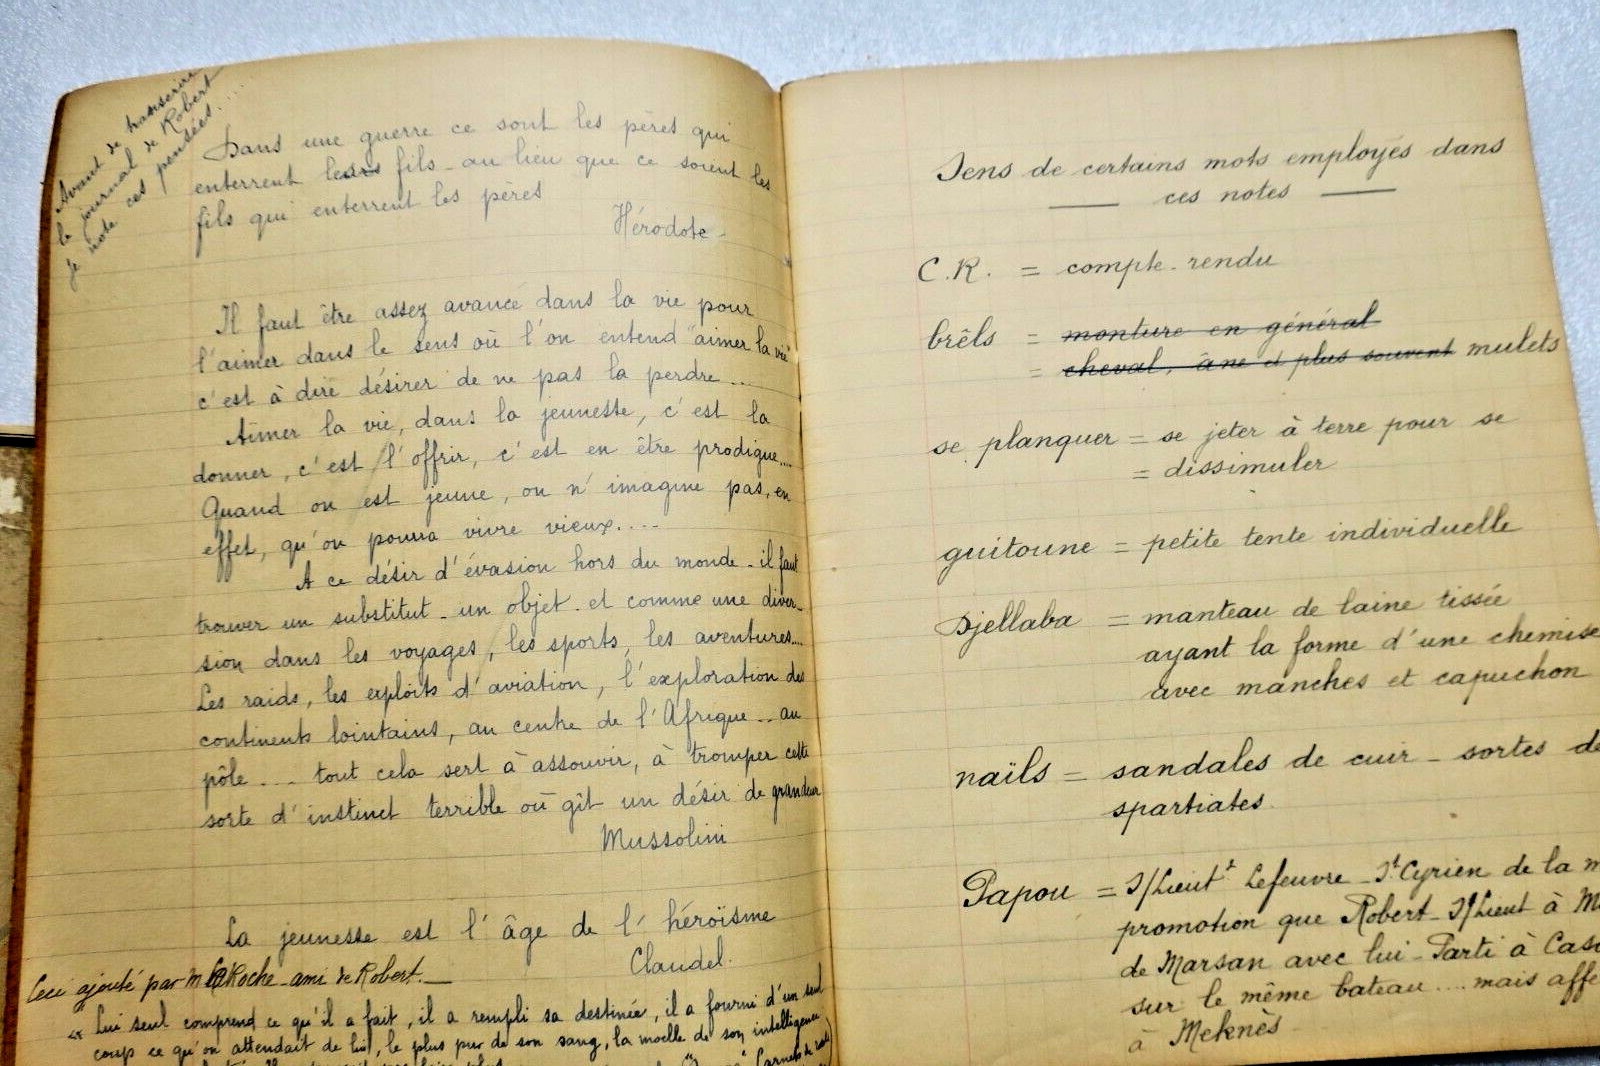 Avant de transcrire
le journal de Robert
je note ces pensées....
Dans une guerre ce sont les pères qui
enterrent leurs fils - au lieu que ce soient les
fils qui enterrent les pères
Hérodote -
Il faut être assez avancé dans la vie pour
l'aimer dans le sens où l'on entend "aimer la vie"
c'est à dire désirer de ne pas la perdre...
Aimer la vie, dans la jeunesse, c'est la
donner, c'est l'offrir, c'est en être prodigue....
Quand on est jeune, on n'imagine pas, en
effet, qu'on pourra vivre vieux....
A ce désir d'évasion hors du monde - il faut
trouver un substitut - un objet - et comme une diver-
sion dans les voyages, les sports, les aventures....
Les raids, les exploits d'aviation, l'exploration des
continents lointains, au centre de l'Afrique... au
pôle.... tout cela sert à assouvir, à tromper cette
sorte d'instinct terrible où gît un désir de grandeur
Mussolini
La jeunesse est l'âge de l'héroïsme
Claudel.
Ceci ajouté par M LaRoche - ami de Robert. —
"Lui seul comprend ce qu'il a fait, il a rempli sa destinée, il a fourni d'un seul
coup ce qu'on attendait de lui, le plus pur de son sang, la moelle de son intelligence
Sens de certains mots employés dans
— ces notes —
C.R. = compte-rendu
brêls = monture en général
= cheval, âne et plus souvent mulets
se planquer = se jeter à terre pour se
= dissimuler
guitoune = petite tente individuelle
Djellaba = manteau de laine tissée
ayant la forme d'une chemise
avec manches et capuchon
naïls = sandales de cuir - sortes de
spartiates.
Papou = S/Lieut^t Lefeuvre - S^t Cyrien de la m
promotion que Robert - S/Lieut à M
de Marsan avec lui - Parti à Cas
sur le même bateau.... mais affe
à Meknès